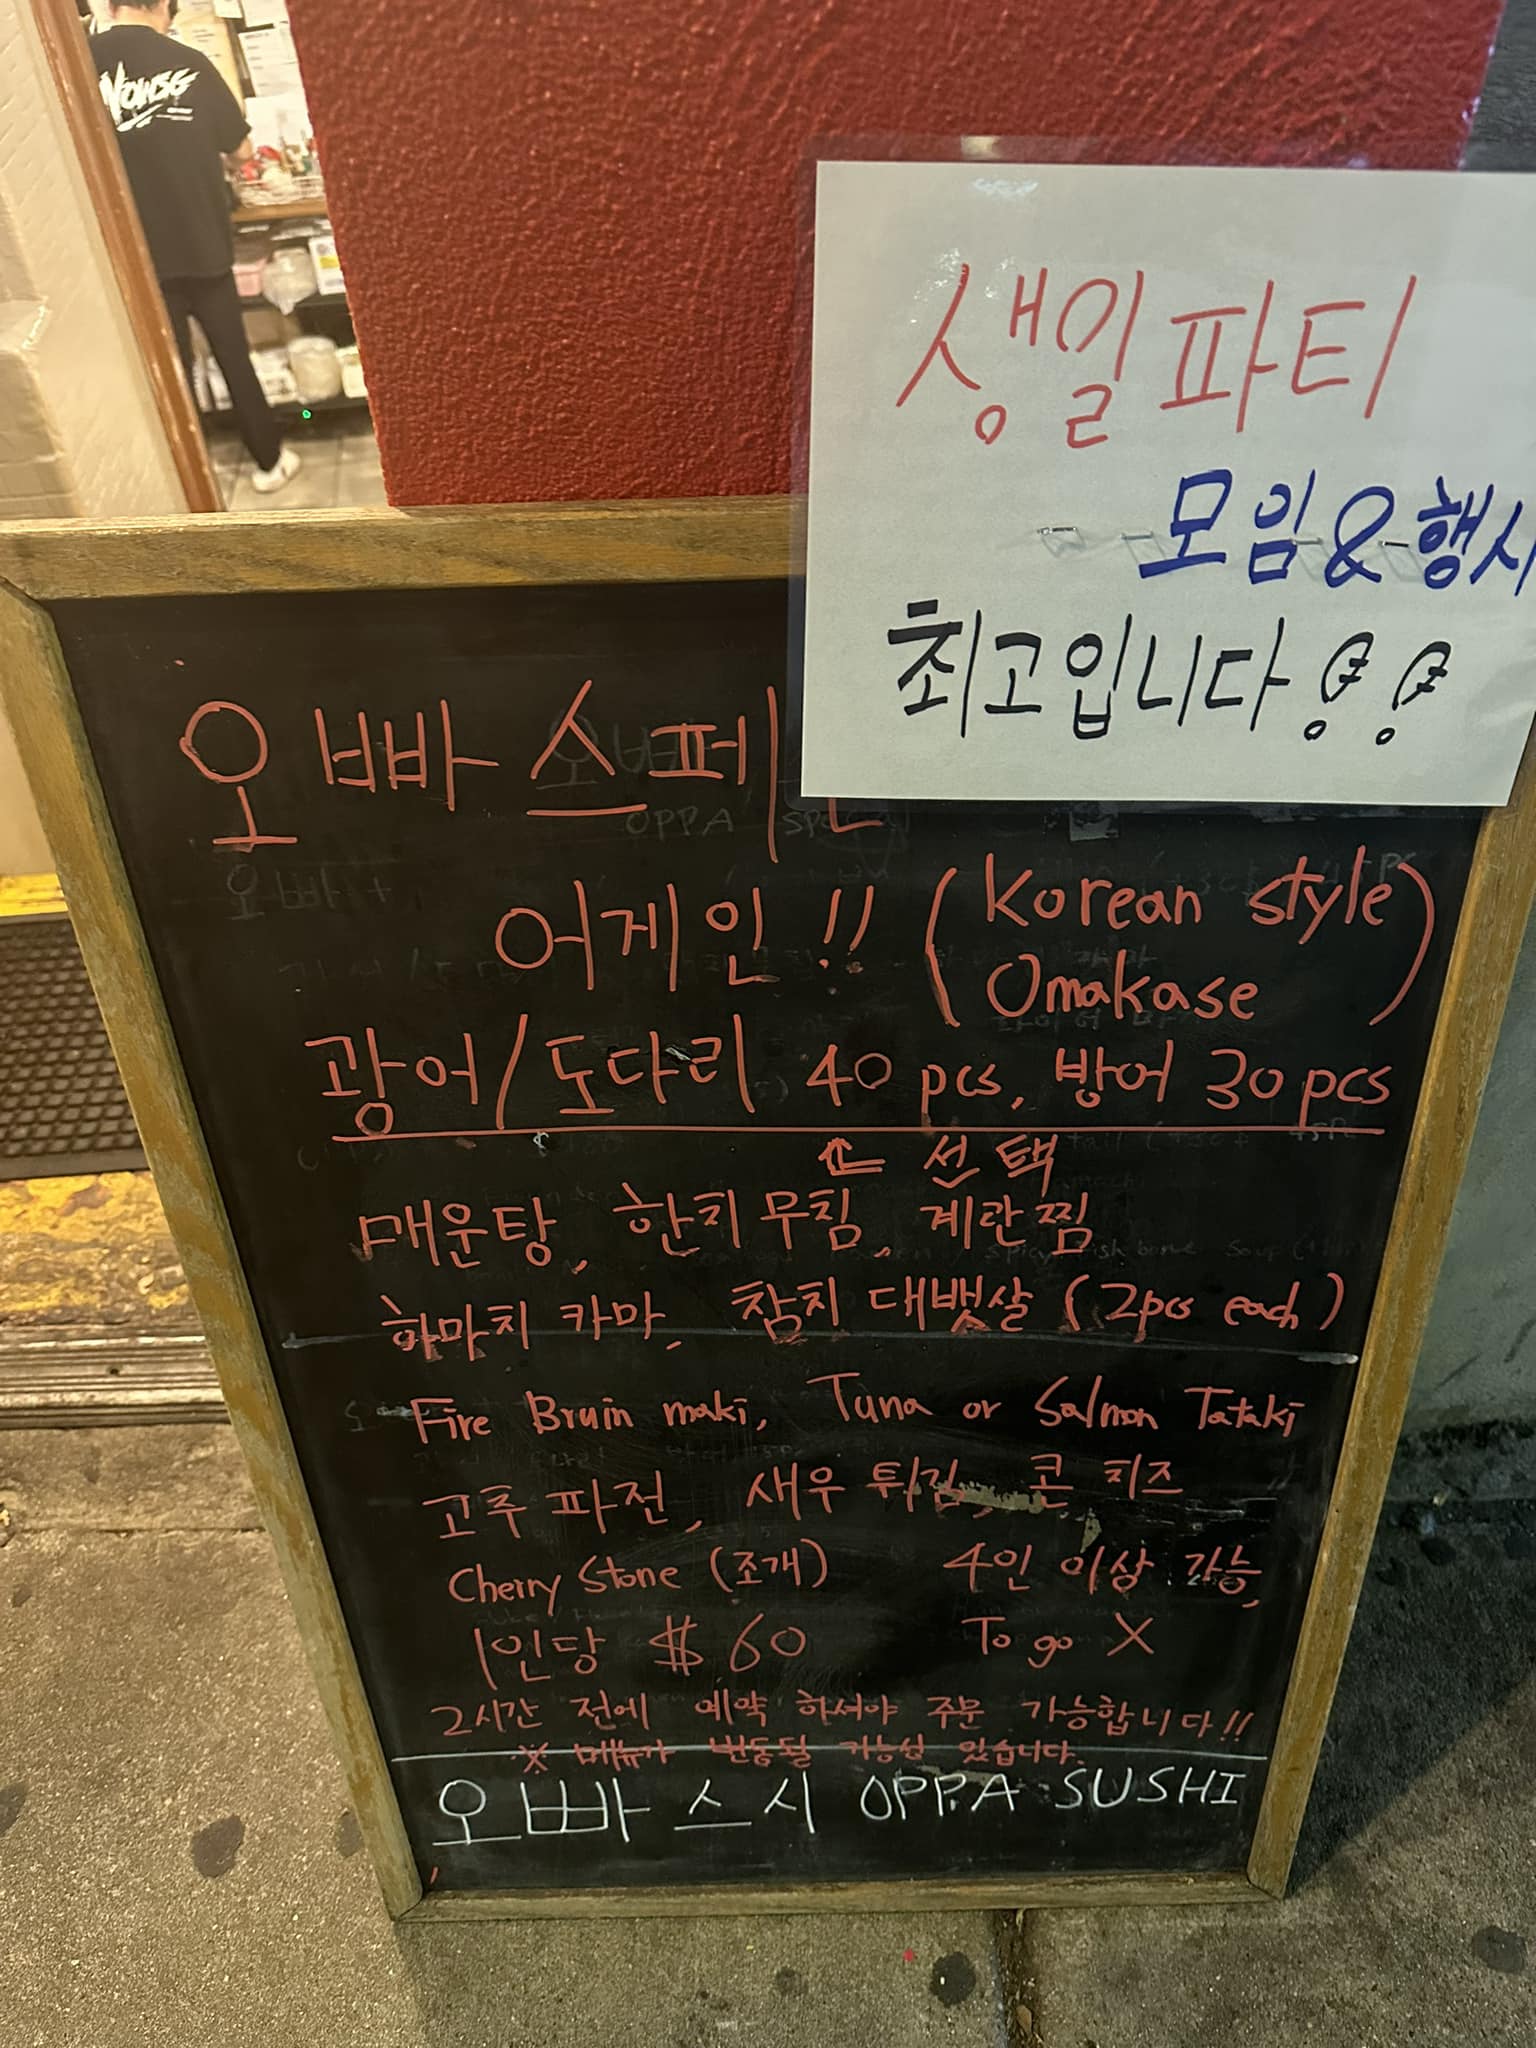 생일파티
모임 & 행사
최고입니다!!
오빠 스페
어게인!! (Korean style
Omakase)
광어/도다리 40 pcs, 방어 30pcs
선택
매운탕, 한치 무침, 계란 찜
하마치 카마, 참치 대뱃살 (2pcs each)
Fire Bruin maki, Tuna or Salmon Tataki
고추 파전, 새우 튀김, 콘 치즈
Cherry Stone (조개) 4인 이상 가능,
1인당 $60 To go X
2시간 전에 예약 하셔야 주문 가능합니다!!
※ 메뉴가 변동될 가능성 있습니다.
오빠 스시 OPPA SUSHI